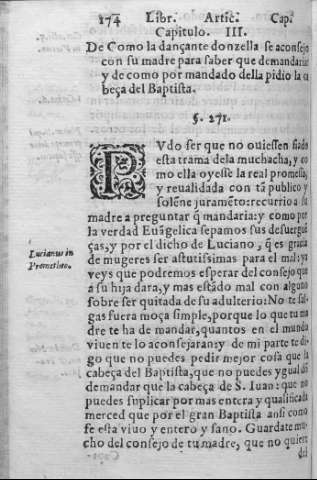 174 Libr. Artic. Cap.
Capitulo. III.
De Como la dançante donzella se aconsejo
con su madre para saber que demandaria
y de como por mandado della pidio la ca
beça del Baptista.
§. 271.
PVdo ser que no ouiessen fiado
esta trama dela muchacha, y co
mo ella oyesse la real promessa,
y reualidada con tã publico y
solẽne juramẽto: recurrio a su
madre a preguntar q̃ mandaria: y como por
la verdad Euãgelica sepamos sus desuergue
ças, y por el dicho de Luciano, q̃ es gracia
de mugeres ser astutissimas para el mal: ya
veys que podremos esperar del consejo que
a su hija dara, y mas estãdo mal con alguno
sobre ser quitada de su adulterio: No te sal-
gas fuera moça simple, porque lo que tu ma
dre te ha de mandar, quantos en el mundo
viuen te lo aconsejaran: y de mi parte te di-
go que no puedes pedir mejor cosa que la
cabeça del Baptista, que no puedes ygual dõ
demandar que la cabeça de S. Iuan: que no
puedes suplicar por mas entera y qualificada
merced que por el gran Baptista ansi como
se esta viuo y entero y sano. Guardate mu-
cho del consejo de tu madre, que no quiere
del
Lucianus in
Prometheo.